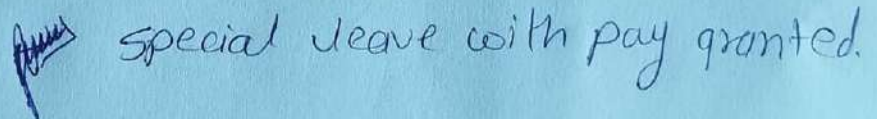 special leave with pay granted.